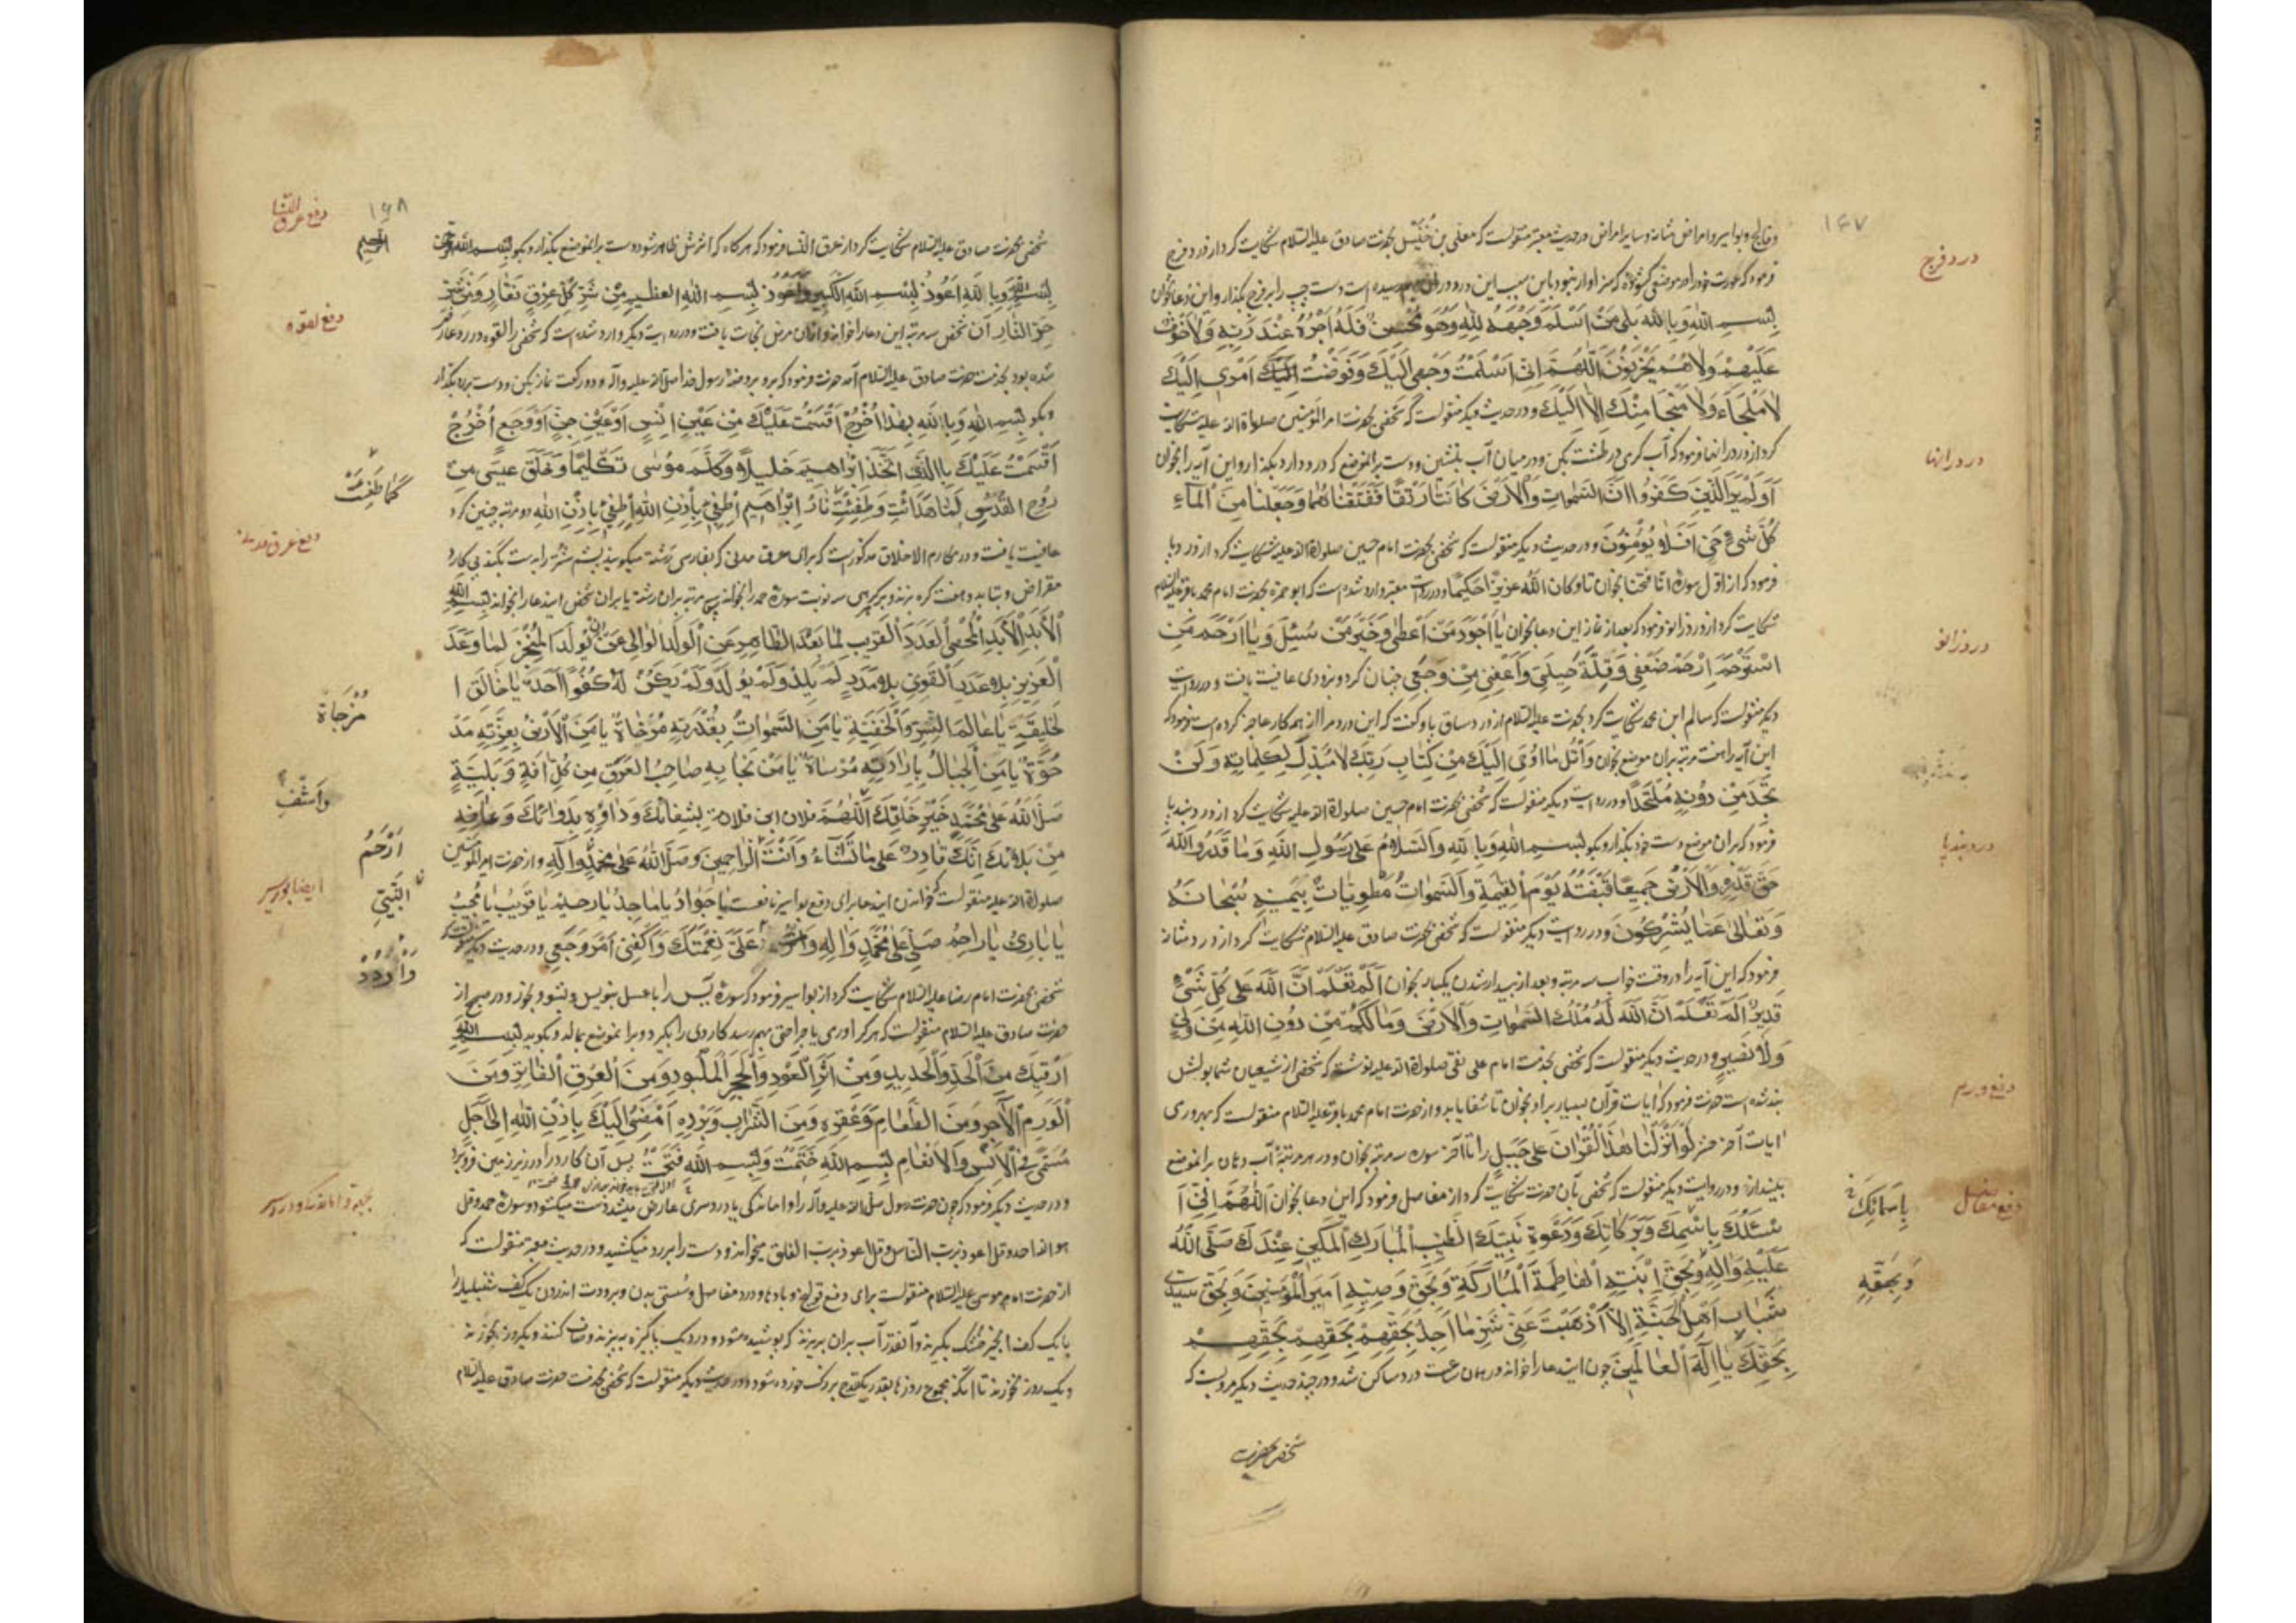 ١٤٧
و فالج و بواسیر و امراض مثانه و سایر امراض در حدیث معتبر منقولست که معلی بن خنیس بحضرت صادق علیه السلام شکایت کرد از درد فرج
درد فرج
فرمود که عورت خود را در موضعی کشوده که سزاوار نبود باین سبب این درد دست چپ را بر فرج بگذار و این دعا بخوان
بِسْمِ اللهِ وَبِاللهِ بَلٰی مَنْ اَسْلَمَ وَجْهَهُ لِلّٰهِ وَهُوَ مُحْسِنٌ فَلَهُ اَجْرُهُ عِنْدَ رَبِّهِ وَلَا خَوْفٌ
عَلَيْهِمْ وَلَا هُمْ يَحْزَنُونَ اَللّٰهُمَّ اِنِّی اَسْلَمْتُ وَجْهِی اِلَيْكَ وَفَوَّضْتُ اِلَيْكَ اَمْرِی اِلَيْكَ
لَا مَلْجَاءَ وَلَا مَنْجَا مِنْكَ اِلَّا اِلَيْكَ و در حدیث دیگر منقولست که شخصی بحضرت امیر المؤمنین صلوات الله علیه شکایت
کرد از درد رانها فرمود که آب کرمی در طشت بکن و در میان آب بنشین و دست بر آنموضع که درد دارد بگذار و این آیه را بخوان
درد رانها
اَوَلَمْ يَرَ الَّذِينَ كَفَرُوا اَنَّ السَّمٰوَاتِ وَالْاَرْضَ كَانَتَا رَتْقًا فَفَتَقْنَاهُمَا وَجَعَلْنَا مِنَ الْمَاءِ
كُلَّ شَیْءٍ حَیٍّ اَفَلَا يُؤْمِنُونَ و در حدیث دیگر منقولست که شخصی بحضرت امام حسین صلوات الله علیه شکایت کرد از درد پا
فرمود که از اول سوره انا فتحنا بخوان تا و کان الله عزیزا حکیما و در روایت معتبر وارد شده است که ابو حمزه بحضرت امام محمد باقر علیه السلام
شکایت کرد از درد زانو فرمود که بعد از نماز این دعا بخوان يَا اَجْوَدَ مَنْ اَعْطٰی وَخَيْرَ مَنْ سُئِلَ وَيَا اَرْحَمَ مَنِ
درد زانو
اسْتُرْحِمَ اِرْحَمْ ضَعْفِی وَقِلَّةَ حِيلَتِی وَاَعْفِنِی مِنْ وَجَعِی چنان کرد و بزودی عافیت یافت و در روایت
دیگر منقولست که سالم ابن محمد شکایت کرد بحضرت علیه السلام از درد ساق پا و گفت که این درد مرا از همه کار عاجز کرده است فرمود که
این آیه را هفت مرتبه بران موضع بخوان وَاتْلُ مَا اُوحِیَ اِلَيْكَ مِنْ كِتَابِ رَبِّكَ لَا مُبَدِّلَ لِكَلِمَاتِهِ وَلَنْ
تَجِدَ مِنْ دُونِهِ مُلْتَحَدًا و در روایت دیگر منقولست که شخصی بحضرت امام حسین صلوات الله علیه شکایت کرد از درد بند پا
فرمود که بران موضع دست خود بگذار و بگو بِسْمِ اللهِ وَبِاللهِ وَالسَّلَامُ عَلٰی رَسُولِ اللهِ وَمَا قَدَرُوا اللهَ
درد بند پا
حَقَّ قَدْرِهِ وَالْاَرْضُ جَمِيعًا قَبْضَتُهُ يَوْمَ الْقِيٰمَةِ وَالسَّمٰوَاتُ مَطْوِيَّاتٌ بِيَمِينِهِ سُبْحَانَهُ
وَتَعَالٰی عَمَّا يُشْرِكُونَ و در روایت دیگر منقولست که شخصی بحضرت صادق علیه السلام شکایت کرد از درد مثانه
فرمود که این آیه را در وقت خواب سه مرتبه و بعد از بیدار شدن یکبار بخوان اَلَمْ تَعْلَمْ اَنَّ اللهَ عَلٰی كُلِّ شَیْءٍ
قَدِيرٌ اَلَمْ تَعْلَمْ اَنَّ اللهَ لَهُ مُلْكُ السَّمٰوَاتِ وَالْاَرْضِ وَمَا لَكُمْ مِنْ دُونِ اللهِ مِنْ وَلِیٍّ
وَلَا نَصِيرٍ و در حدیث دیگر منقولست که شخصی بخدمت امام علی نقی صلوات الله علیه نوشت که شخصی از شیعیان شما بولش
بند شده است حضرت فرمود که آیات قرآن بسیار بر او بخوان تا شفا یابد و از حضرت امام محمد باقر علیه السلام منقولست که بر ورمی
دفع ورم
آیات آخر حشر لَوْ اَنْزَلْنَا هٰذَا الْقُرْآنَ عَلٰی جَبَلٍ را تا آخر سوره سه مرتبه بخوان و در هر مرتبه آب دهان بر آنموضع
بینداز و در روایت دیگر منقولست که شخصی بآن حضرت شکایت کرد از درد مفاصل فرمود که این دعا بخوان اَللّٰهُمَّ اِنِّی اَ
دفع مفاصل
بِاَسْمَائِكَ
سْئَلُكَ بِاسْمِكَ وَبَرَكَاتِكَ وَدَعْوَةِ نَبِيِّكَ الطَّيِّبِ الْمُبَارَكِ الْمَكِينِ عِنْدَكَ صَلَّی اللهُ
عَلَيْهِ وَآلِهِ وَبِحَقِّ ابْنَتِهِ الْفَاطِمَةَ الْمُبَارَكَةِ وَبِحَقِّ وَصِيِّهِ اَمِيرِ الْمُؤْمِنِينَ وَبِحَقِّ سَيِّدَیْ
وَبِحَقِّهِ
شَبَابِ اَهْلِ الْجَنَّةِ اِلَّا اَذْهَبْتَ عَنِّی شَرَّ مَا اَجِدُ بِحَقِّهِمْ بِحَقِّهِمْ بِحَقِّهِمْ
بِحَقِّكَ يَا اِلٰهَ الْعَالَمِينَ چون این دعا را خواند در همان ساعت درد ساکن شد و در چند حدیث دیگر مرویست که
شخصی بحضرت
١٤٨
شخصی بحضرت صادق علیه السلام شکایت کرد از عرق النسا فرمود که هرگاه که اثرش ظاهر شود دست بر آنموضع بگذار و بگو بسم الله الرحمن
الرحیم
دفع عرق النسا
بِسْمِ اللهِ وَبِاللهِ اَعُوذُ بِسْمِ اللهِ الْكَبِيرِ وَاَعُوذُ بِسْمِ اللهِ الْعَظِيمِ مِنْ شَرِّ كُلِّ عِرْقٍ نَعَّارٍ وَمِنْ شَرِّ
حَرِّ النَّارِ آن شخص سه مرتبه این دعا را خواند و ازان مرض نجات یافت و در روایت دیگر وارد شده است که شخصی را لقوه در رو عارض
دفع لقوه
شده بود بخدمت حضرت صادق علیه السلام آمد حضرت فرمود که برو بروضه رسول خدا صلی الله علیه وآله و دو رکعت نماز بکن و دست بر رو بگذار
و بگو بِسْمِ اللهِ وَبِاللهِ بِهٰذَا اُخْرُجْ اَقْسَمْتُ عَلَيْكَ مِنْ عَيْنِ اِنْسٍ اَوْ عَيْنِ جِنٍّ اَوْ وَجَعٍ اُخْرُجْ
اَقْسَمْتُ عَلَيْكَ بِالَّذِی اتَّخَذَ اِبْرَاهِيمَ خَلِيلًا وَكَلَّمَ مُوسٰی تَكْلِيمًا وَخَلَقَ عِيسٰی مِنْ
كَمَا طَفِئَتْ
رُوحِ الْقُدُسِ لَمَّا هَدَأْتِ وَطَفِئْتِ نَارُ اِبْرَاهِيمَ اِطْفَیْ بِاِذْنِ اللهِ اِطْفَیْ بِاِذْنِ اللهِ دو مرتبه چنین کرد
عافیت یافت و در مکارم الاخلاق مذکورست که برای عرق مدنی که بفارسی رشته میگویند پشم شتر را بدست بکند بی کارد
دفع عرق مدنی
مقراض و بتابد و هفت گره بزند و بر هر گرهی سه نوبت سوره حمد را بخواند بران رشته یا بران شخص این دعا را بخواند بِسْمِ اللهِ
الْاَبَدِ الْاَبَدِ الْمُحْصِی الْعَدَدَ الْقَرِيبِ لِمَا بَعُدَ الطَّاهِرِ عَنِ الْوَلَدِ الْعَالِی عَنْ اَنْ يُولَدَ الْمُنْجِزِ لِمَا وَعَدَ
الْعَزِيزِ بِلَا عَدَدٍ الْقَوِیِّ بِلَا مَدَدٍ لَمْ يَلِدْ وَلَمْ يُولَدْ وَلَمْ يَكُنْ لَهُ كُفُوًا اَحَدٌ يَا خَالِقَ ا
لْخَلِيقَةِ يَا عَالِمَ السِّرِّ وَالْخَفِيَّةِ يَا مَنِ السَّمٰوَاتُ بِقُدْرَتِهِ مُرْخَاةٌ يَا مَنِ الْاَرْضُ بِعِزَّتِهِ مَدْ
مُزْجَاةٌ
حُوَّةٌ يَا مَنِ الْجِبَالُ بِاِرَادَتِهِ مُرْسَاةٌ يَا مَنْ نَجَا بِهِ صَاحِبُ الْغَرَقِ مِنْ كُلِّ آفَةٍ وَبَلِيَّةٍ
صَلِّ اللهُ عَلٰی مُحَمَّدٍ خَيْرِ خَلْقِكَ اَللّٰهُمَّ فلان ابن فلانة بِشِفَائِكَ وَدَاوِهِ بِدَوَائِكَ وَعَافِهِ
وَاشْفِ
مِنْ بَلَائِكَ اِنَّكَ قَادِرٌ عَلٰی مَا تَشَاءُ وَاَنْتَ الرَّاحِمِينَ وَصَلَّی اللهُ عَلٰی مُحَمَّدٍ وَآلِهِ و از حضرت امیر المؤمنین
اَرْحَمُ
النَّبِیِّ
صلوات الله علیه منقولست که خواندن این دعا برای دفع بواسیر نافعست يَا جَوَادُ يَا مَاجِدُ يَا رَحِيمُ يَا قَرِيبُ يَا مُجِيبُ
ایضا بواسیر
يَا بَارِئُ يَا رَاحِمُ صَلِّ عَلٰی مُحَمَّدٍ وَآلِهِ عَلَیَّ نِعْمَتَكَ وَاكْفِنِی اَمْرَ وَجَعِی و در حدیث دیگر منقولست که
وَارْدُدْ
شخصی بحضرت امام رضا علیه السلام شکایت کرد از بواسیر فرمود که سوره یس را با عسل بنویس و بشو و بخور و در صحیح از
حضرت صادق علیه السلام منقولست که هر کرا ورمی یا جراحتی بهم رسد کاردی را بگیرد و بر آنموضع بمالد و بگوید بِسْمِ اللهِ
اَرْقِيكَ مِنَ الْحَدِّ وَالْحَدِيدِ وَمِنْ اَثَرِ الْعُودِ وَالْحَجَرِ الْمَلْبُودِ وَمِنَ الْعِرْقِ الْفَاتِرِ وَمِنَ
الْوَرَمِ الْآجِرِ وَمِنَ الطَّعَامِ وَعَقْرِهِ وَمِنَ الشَّرَابِ وَبَرْدِهِ اَمْضِی اِلَيْكَ بِاِذْنِ اللهِ اِلٰی اَجَلٍ
مُسَمًّی فِی الْاِنْسِ وَالْاَنْعَامِ بِسْمِ اللهِ خَتَمْتُ وَبِسْمِ اللهِ فَتَحْتُ پس آن کارد را در زیر زمین فرو برد
و در حدیث دیگر فرمود که چون حضرت رسول صلی الله علیه وآله را واماندگی یا درد سری عارض میشد دست میکشود و سوره حمد و قل
هو الله احد و قل اعوذ برب الناس و قل اعوذ برب الفلق میخواند و دست را بر رو میکشید و در حدیث معتبر منقولست که
از حضرت امام موسی علیه السلام منقولست برای دفع قولنج و بادها و درد مفاصل و سستی بدن و برودت اندرون یک کف شنبلیله را
با یک کف انجیر خشک بگیرند و آنقدر آب بران بریزند که پوشیده شود و در دیک پاکیزه بپزند و صاف کنند و یکروز بخورند
و یک روز نخورند تا آنکه مجموع روزها بقدر یکقدح بزرگ خورده شود و در حدیث دیگر منقولست که شخصی بخدمت حضرت صادق علیه السلام